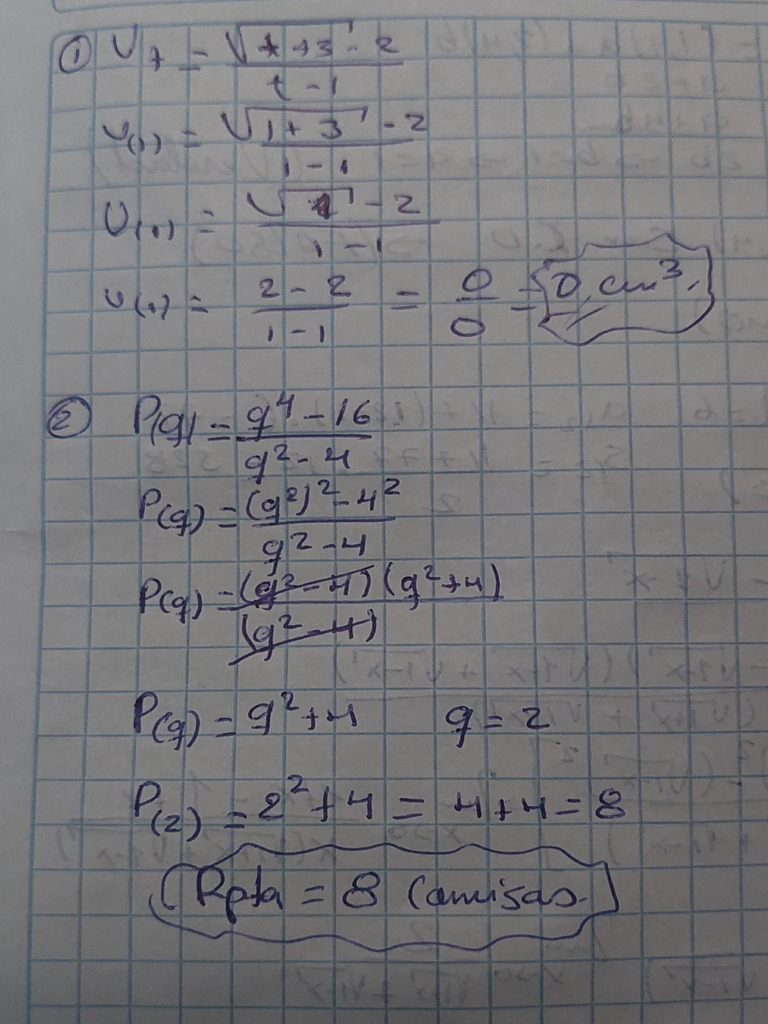 ① V_t = √(t+3) - 2 / t - 1
V(1) = √(1+3) - 2 / 1 - 1
V(1) = √4 - 2 / 1 - 1
V(1) = 2 - 2 / 1 - 1 = 0/0 = 0 cm³.
② P(q) = q⁴ - 16 / q² - 4
P(q) = (q²)² - 4² / q² - 4
P(q) = (q² - 4)(q² + 4) / (q² - 4)
P(q) = q² + 4 q = 2
P(2) = 2² + 4 = 4 + 4 = 8
Rpta = 8 Camisas.